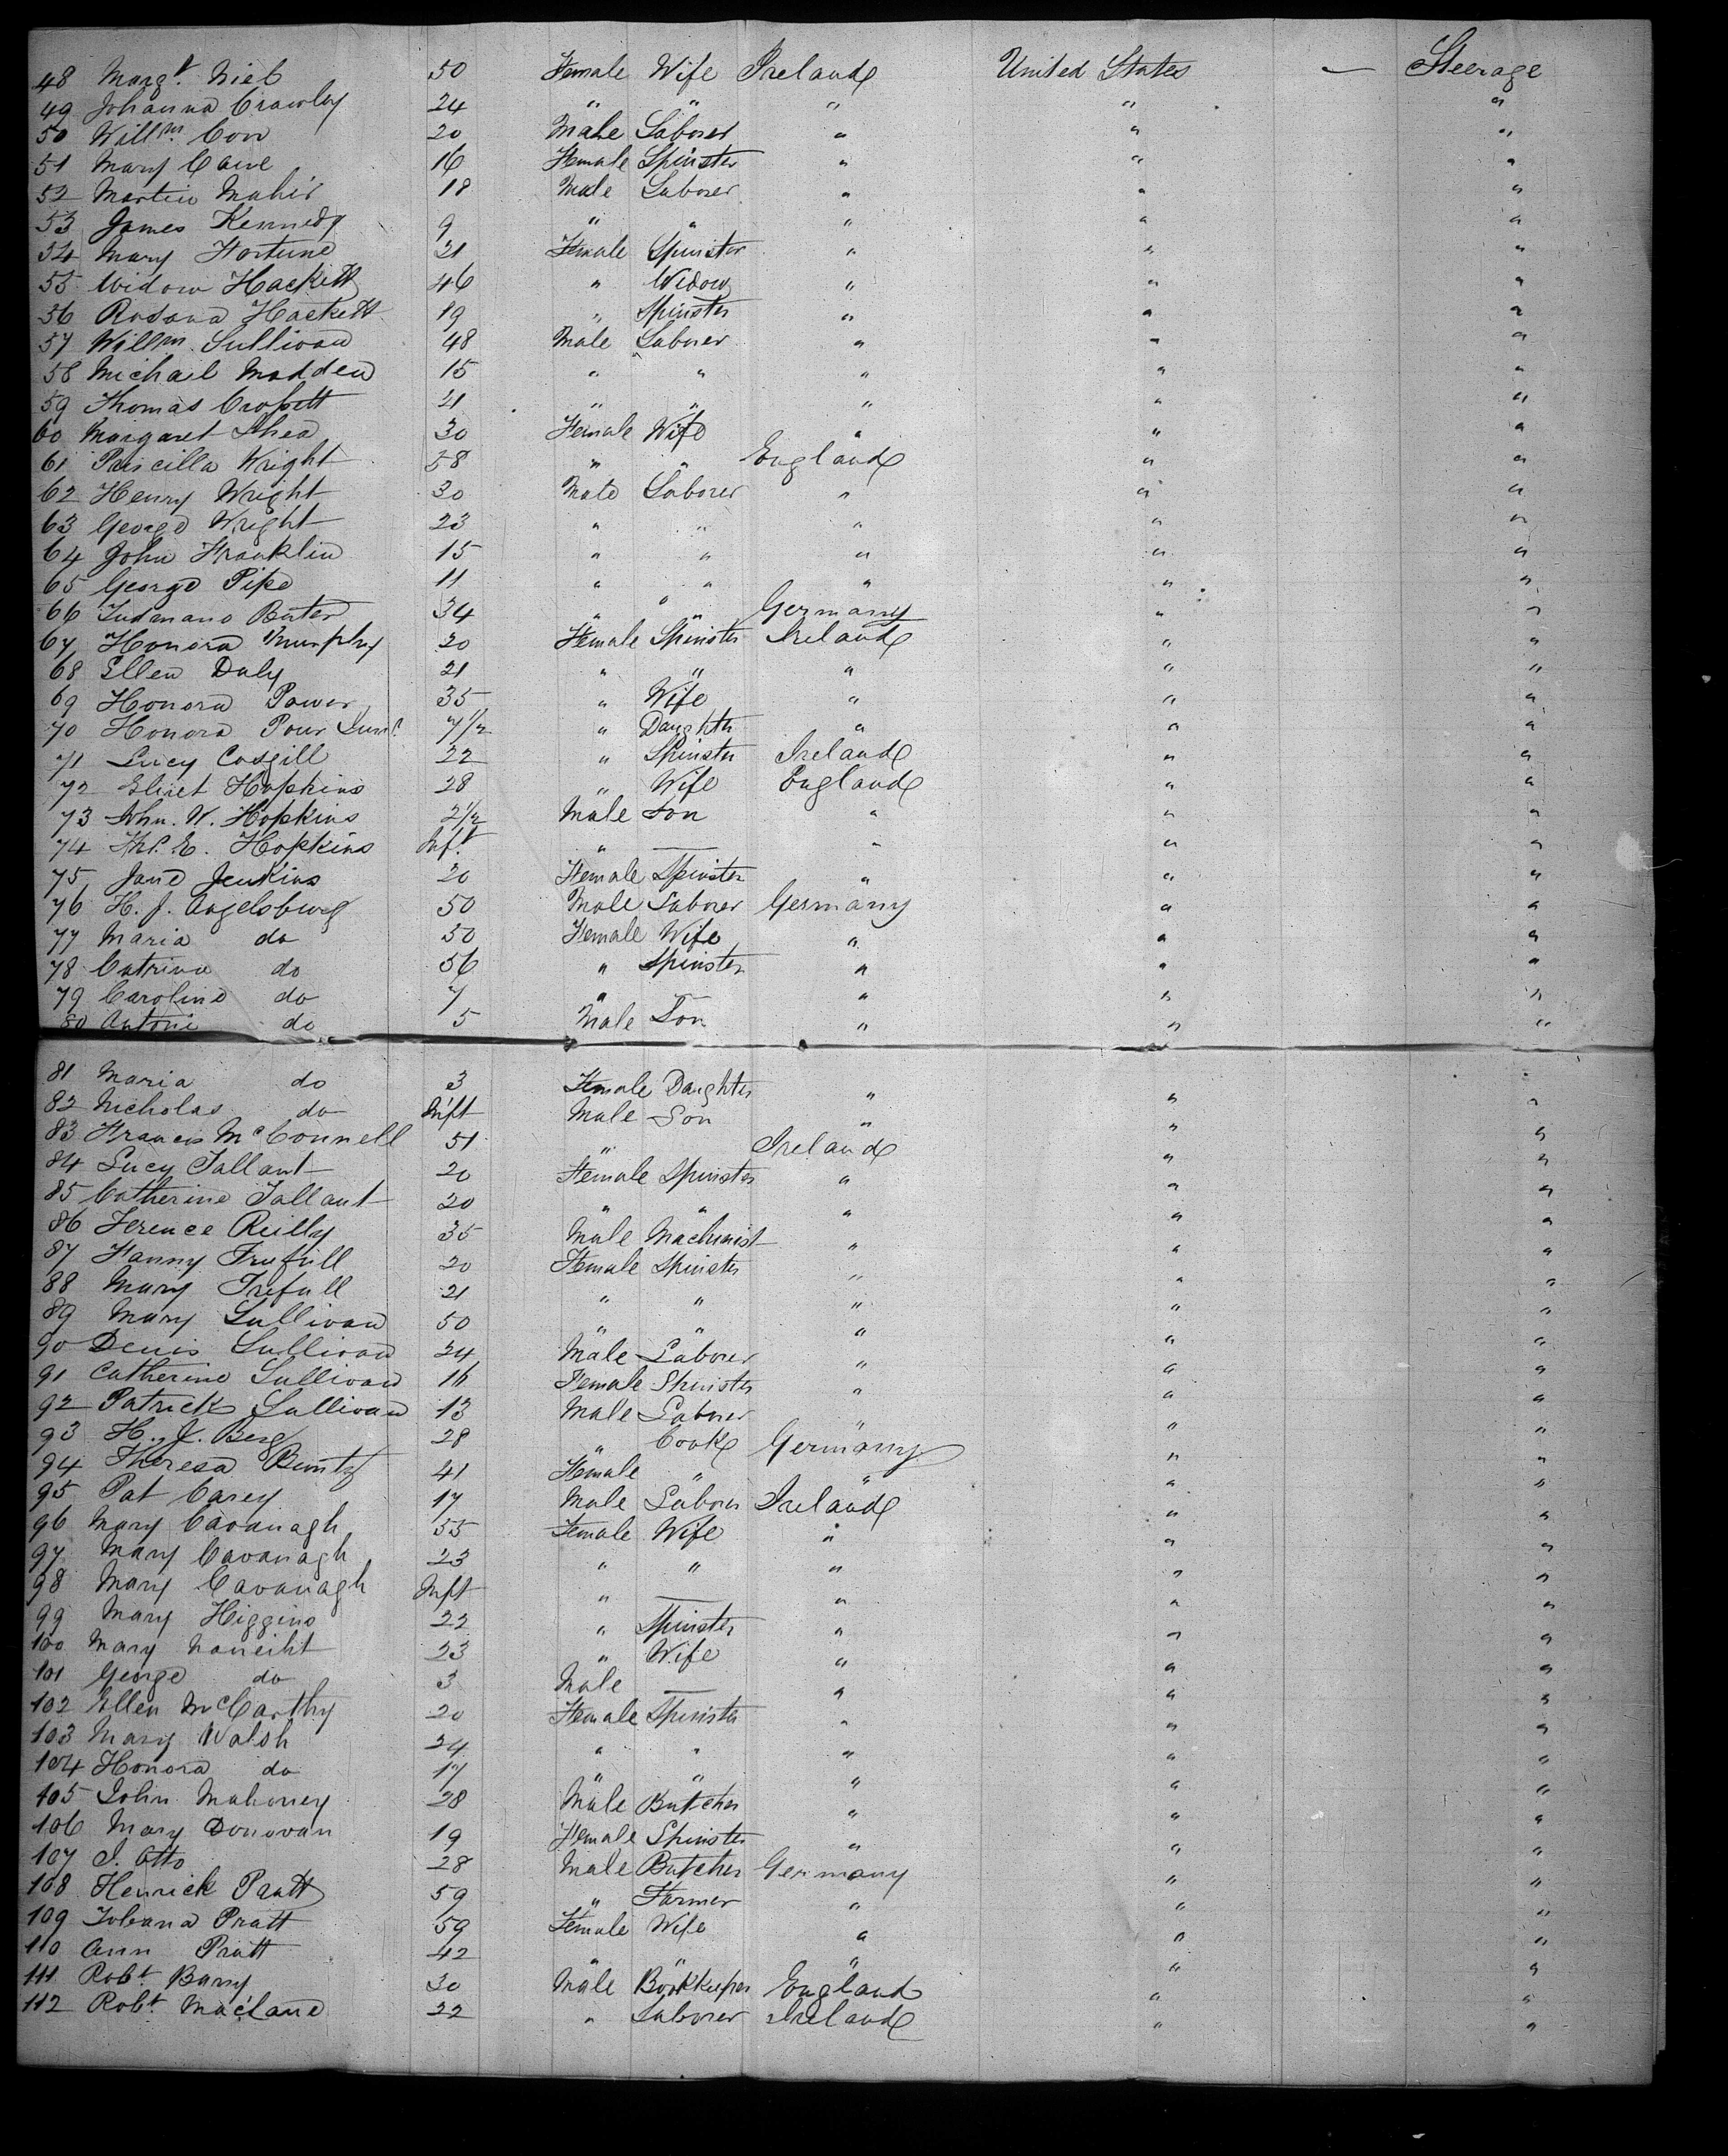 48 Margt. Nieb 50 Female Wife Ireland United States — Steerage
49 Johanna Crawley 24 " " " " "
50 Willm. Con 20 Male Laborer " " "
51 Mary Cane 16 Female Spinster " " "
52 Martin Mahir 18 Male Laborer " " "
53 James Kennedy 9 " " " " "
54 Mary Fortune 21 Female Spinster " " "
55 Widow Hackett 46 " Widow " " "
56 Rosana Hackett 19 " Spinster " " "
57 Willm. Sullivan 48 Male Laborer " " "
58 Michael Madden 15 " " " " "
59 Thomas Crofsett 21 " " " " "
60 Margaret Shea 30 Female Wife " " "
61 Priscilla Wright 58 " " England " "
62 Henry Wright 30 Male Laborer " " "
63 George Wright 23 " " " " "
64 John Franklin 15 " " " " "
65 George Pipe 11 " " " " "
66 34 " " Germany " "
67 Honora Murphy 20 Female Spinster Ireland " "
68 Ellen Daly 21 " " " " "
69 Honora Power 35 " Wife " " "
70 Honora Pour Junr. 7 1/2 " Daughter " " "
71 Lucy Cosgill 22 " Spinster Ireland " "
72 Elizet Hopkins 28 " Wife England " "
73 John. W. Hopkins 2 1/2 Male Son " " "
74 E. Hopkins Inft " — " " "
75 Jane Jenkins 20 Female Spinster " " "
76 H. J. Angelsburg 50 Male Laborer Germany " "
77 Maria do 50 Female Wife " " "
78 Catrina do 56 " Spinster " " "
79 Caroline do 7 " — " " "
80 Antoni do 5 Male Son " " "
81 Maria do 3 Female Daughter " " "
82 Nicholas do Inft Male Son " " "
83 Francis McConnell 51 " Ireland " "
84 Lucy Tallant 20 Female Spinster " " "
85 Catherine Tallant 20 " " " " "
86 Terence Reilly 35 Male Machinist " " "
87 Fanny Trufull 20 Female Spinster " " "
88 Mary Trefull 21 " " " " "
89 Mary Sullivan 50 " " " " "
90 Denis Sullivan 24 Male Laborer " " "
91 Catherine Sullivan 16 Female Spinster " " "
92 Patrick Sullivan 13 Male Laborer " " "
93 H. J. Berg 28 " Cook Germany " "
94 Theresa Buntz 41 Female " " " "
95 Pat Carey 17 Male Laborer Ireland " "
96 Mary Cavanagh 55 Female Wife " " "
97 Mary Cavanagh 23 " " " " "
98 Mary Cavanagh Inft " — " " "
99 Mary Higgins 22 " Spinster " " "
100 Mary 23 " Wife " " "
101 George do 3 Male — " " "
102 Ellen McCarthy 20 Female Spinster " " "
103 Mary Walsh 24 " " " " "
104 Honora do 17 " " " " "
105 John Mahoney 28 Male Butcher " " "
106 Mary Donovan 19 Female Spinster " " "
107 J. Otto 28 Male Butcher Germany " "
108 Henrick Pratt 59 " Farmer " " "
109 Johana Pratt 59 Female Wife " " "
110 Ann Pratt 42 " " " " "
111 Robt. Barry 30 Male Bookkeeper England " "
112 Robt. Maclane 22 " Laborer Ireland " "